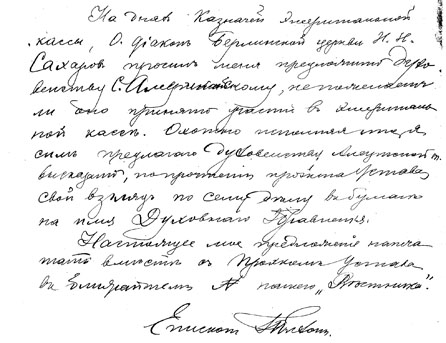 На дняхъ Казначей Эмеритальной
кассы, О. діаконъ Берлинской церкви Н. Н.
Сахаровъ просилъ меня предложить Духо-
венству С. Американскому, не пожелаетъ
ли оно принять участіе в эмериталь
ной кассѣ. Охотно исполняя это, я
симъ предлагаю духовенству Алеутской
высказать, по прочтеніи проэкта Устава
свой взглядъ по сему дѣлу въ бумагѣ
на имя Духовнаго Правленія.
Настоящее мое предложеніе напеча
тать вмѣстѣ съ Проэктомъ Устава
въ ближайшемъ № нашего „Вѣстника".
Епископъ Тихонъ.